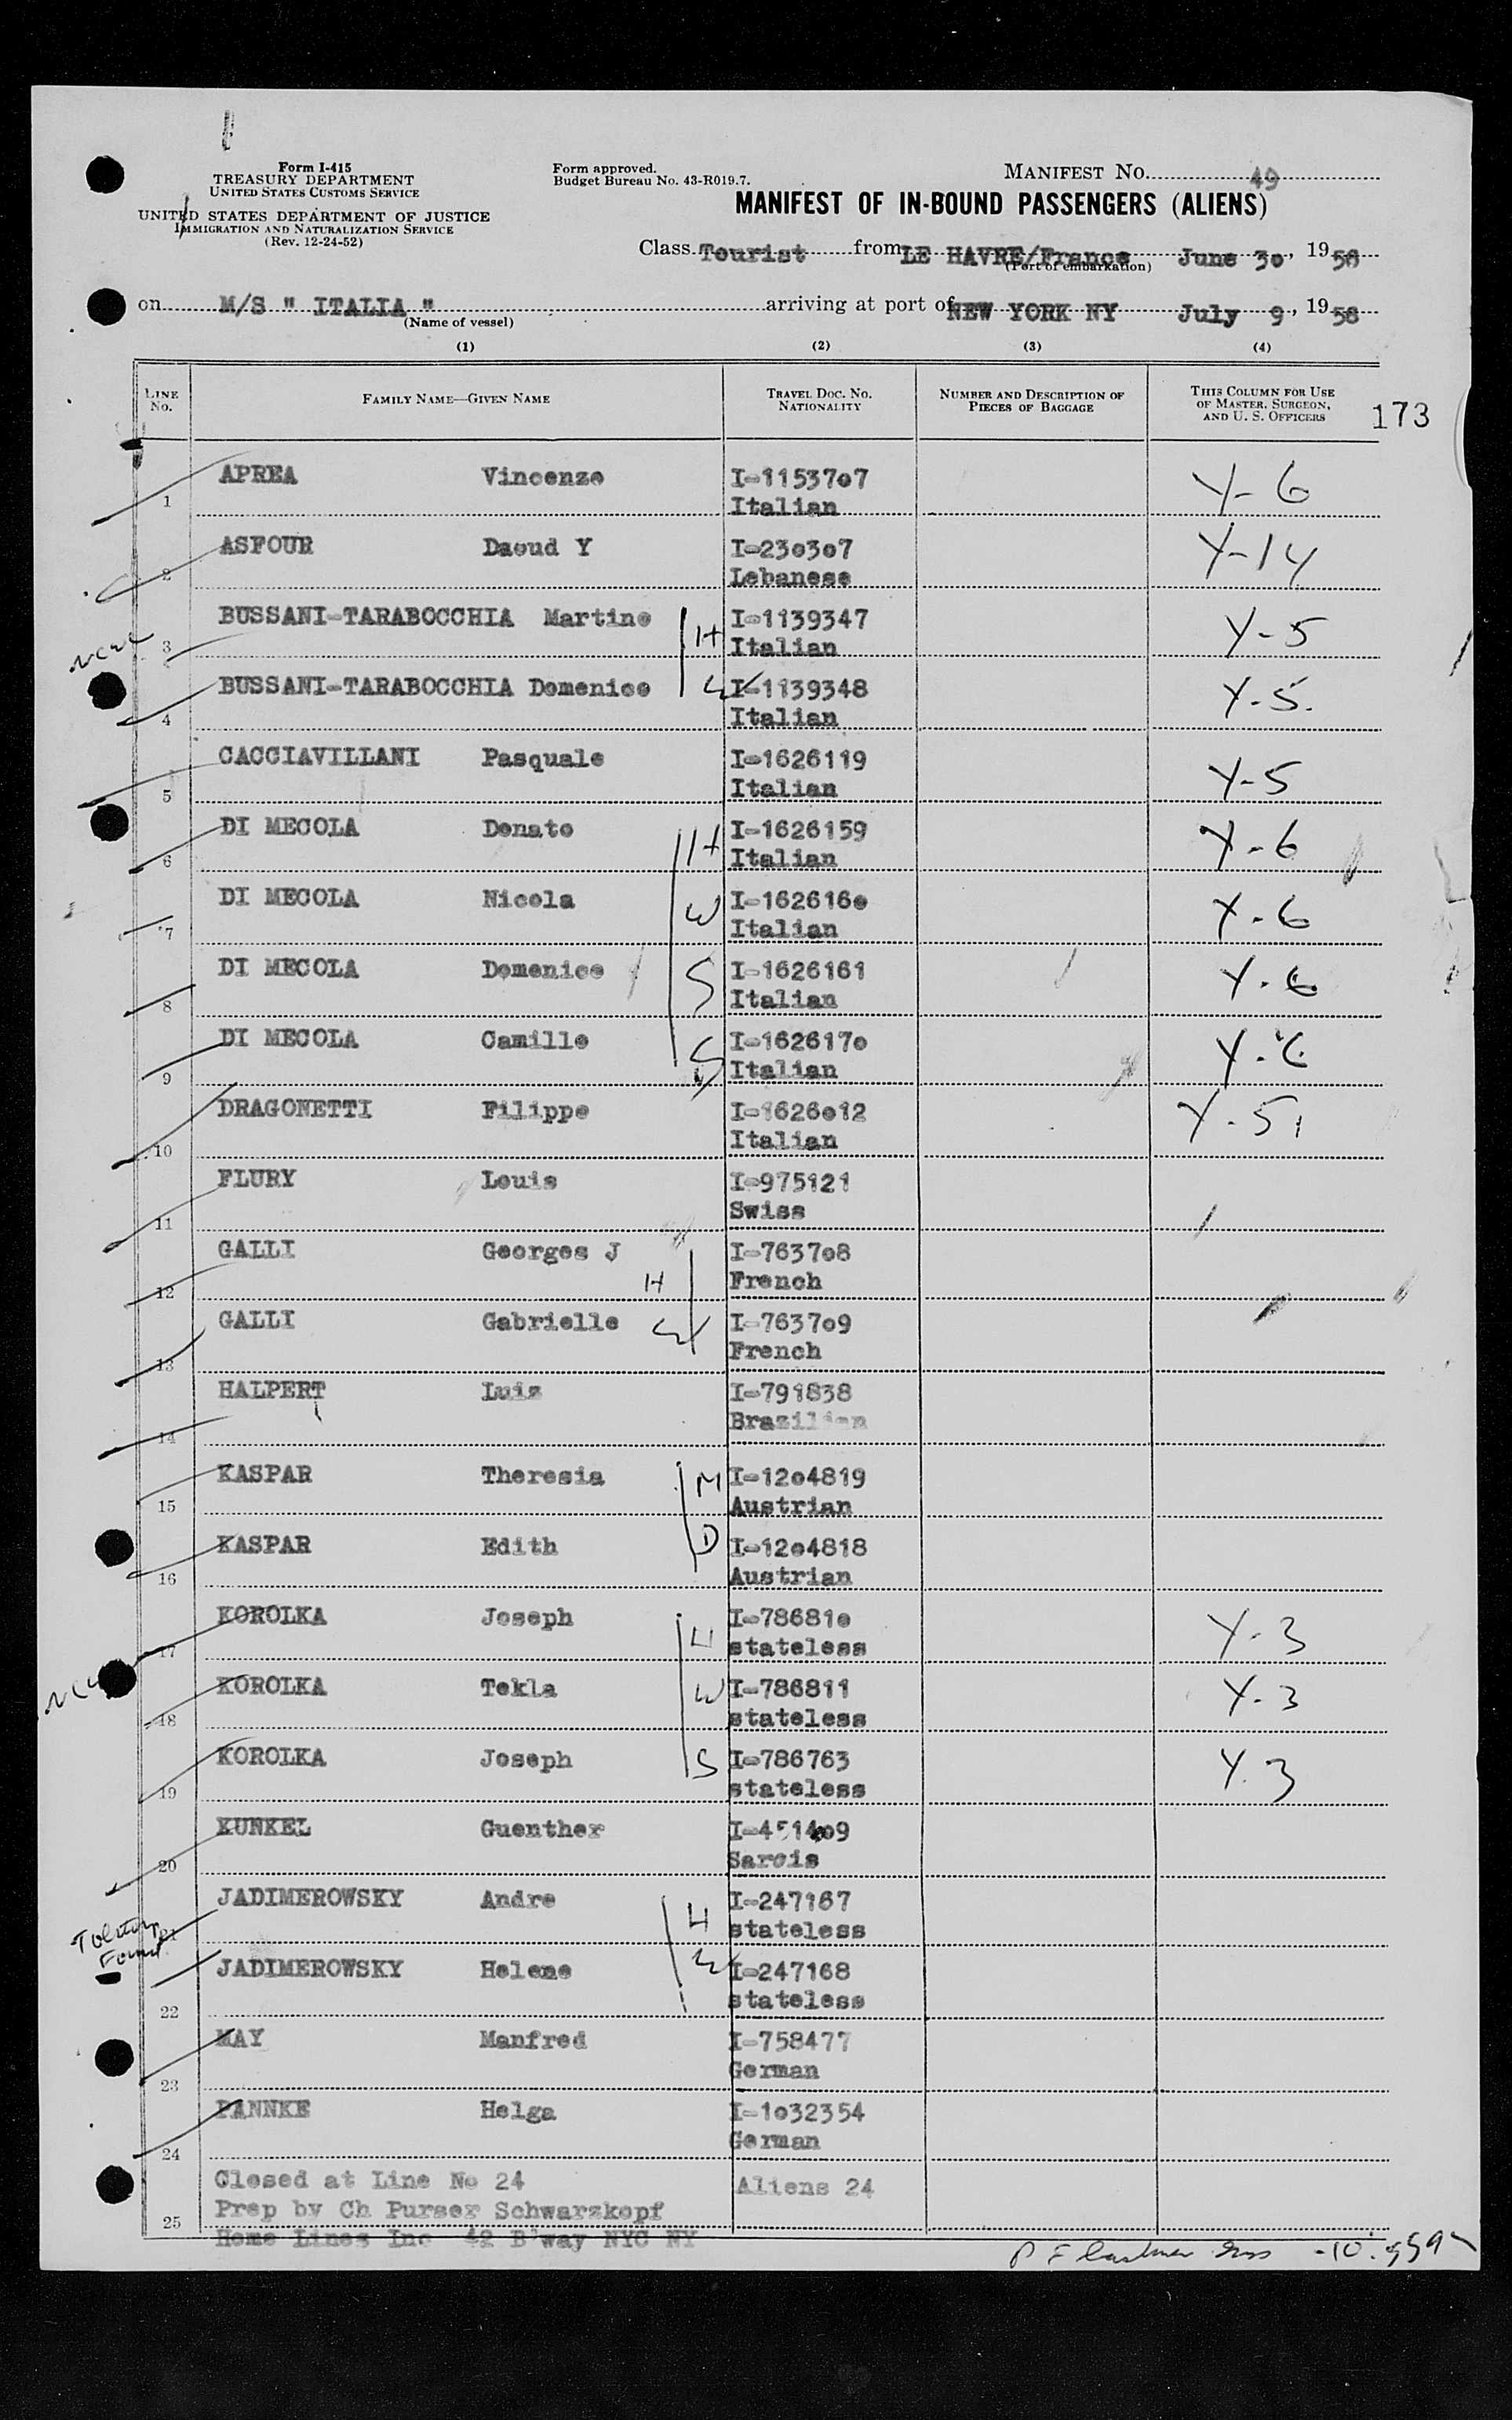 Form I-415
TREASURY DEPARTMENT
UNITED STATES CUSTOMS SERVICE
UNITED STATES DEPARTMENT OF JUSTICE
IMMIGRATION AND NATURALIZATION SERVICE
(Rev. 12-24-52)
Form approved.
Budget Bureau No. 43-R019.7.
MANIFEST NO. 49
MANIFEST OF IN-BOUND PASSENGERS (ALIENS)
Class Tourist from LE HAVRE/France June 30, 1958
(Port of embarkation)
on M/S " ITALIA " arriving at port of NEW YORK NY July 9, 1958
(Name of vessel)
(1) (2) (3) (4)
LINE No. FAMILY NAME—GIVEN NAME TRAVEL DOC. NO. NATIONALITY NUMBER AND DESCRIPTION OF PIECES OF BAGGAGE THIS COLUMN FOR USE OF MASTER, SURGEON, AND U. S. OFFICERS
173
1 APREA Vincenzo I-1153707 Y-6
Italian
2 ASFOUR Daoud Y I-230307 Y-14
Lebanese
3 BUSSANI-TARABOCCHIA Martino H I-1139347 Y-5
Italian
4 BUSSANI-TARABOCCHIA Domenica W I-1139348 Y-5
Italian
5 CACCIAVILLANI Pasquale I-1626119 Y-5
Italian
6 DI MECOLA Donato H I-1626159 Y-6
Italian
7 DI MECOLA Nicola W I-1626160 Y-6
Italian
8 DI MECOLA Domenico S I-1626161 Y-6
Italian
9 DI MECOLA Camillo S I-1626170 Y-6
Italian
10 DRAGONETTI Filippo I-1626012 Y-5
Italian
11 FLURY Louis I-975121
Swiss
12 GALLI Georges J H I-763708
French
13 GALLI Gabrielle W I-763709
French
14 HALPERT Luiz I-791838
Brazilian
15 KASPAR Theresia M I-1204819
Austrian
16 KASPAR Edith D I-1204818
Austrian
17 KOROLKA Joseph H I-786810 Y-3
stateless
18 KOROLKA Tekla W I-786811 Y-3
stateless
19 KOROLKA Joseph S I-786763 Y-3
stateless
20 KUNKEL Guenther I-451409
Sarois
21 JADIMEROWSKY Andre H I-247167
stateless
22 JADIMEROWSKY Helene W I-247168
stateless
23 MAY Manfred I-758477
German
24 PANNKE Helga I-1032354
German
25 Closed at Line No 24 Aliens 24
Prep by Ch Purser Schwarzkopf
Home Lines Inc 42 B'way NYC NY